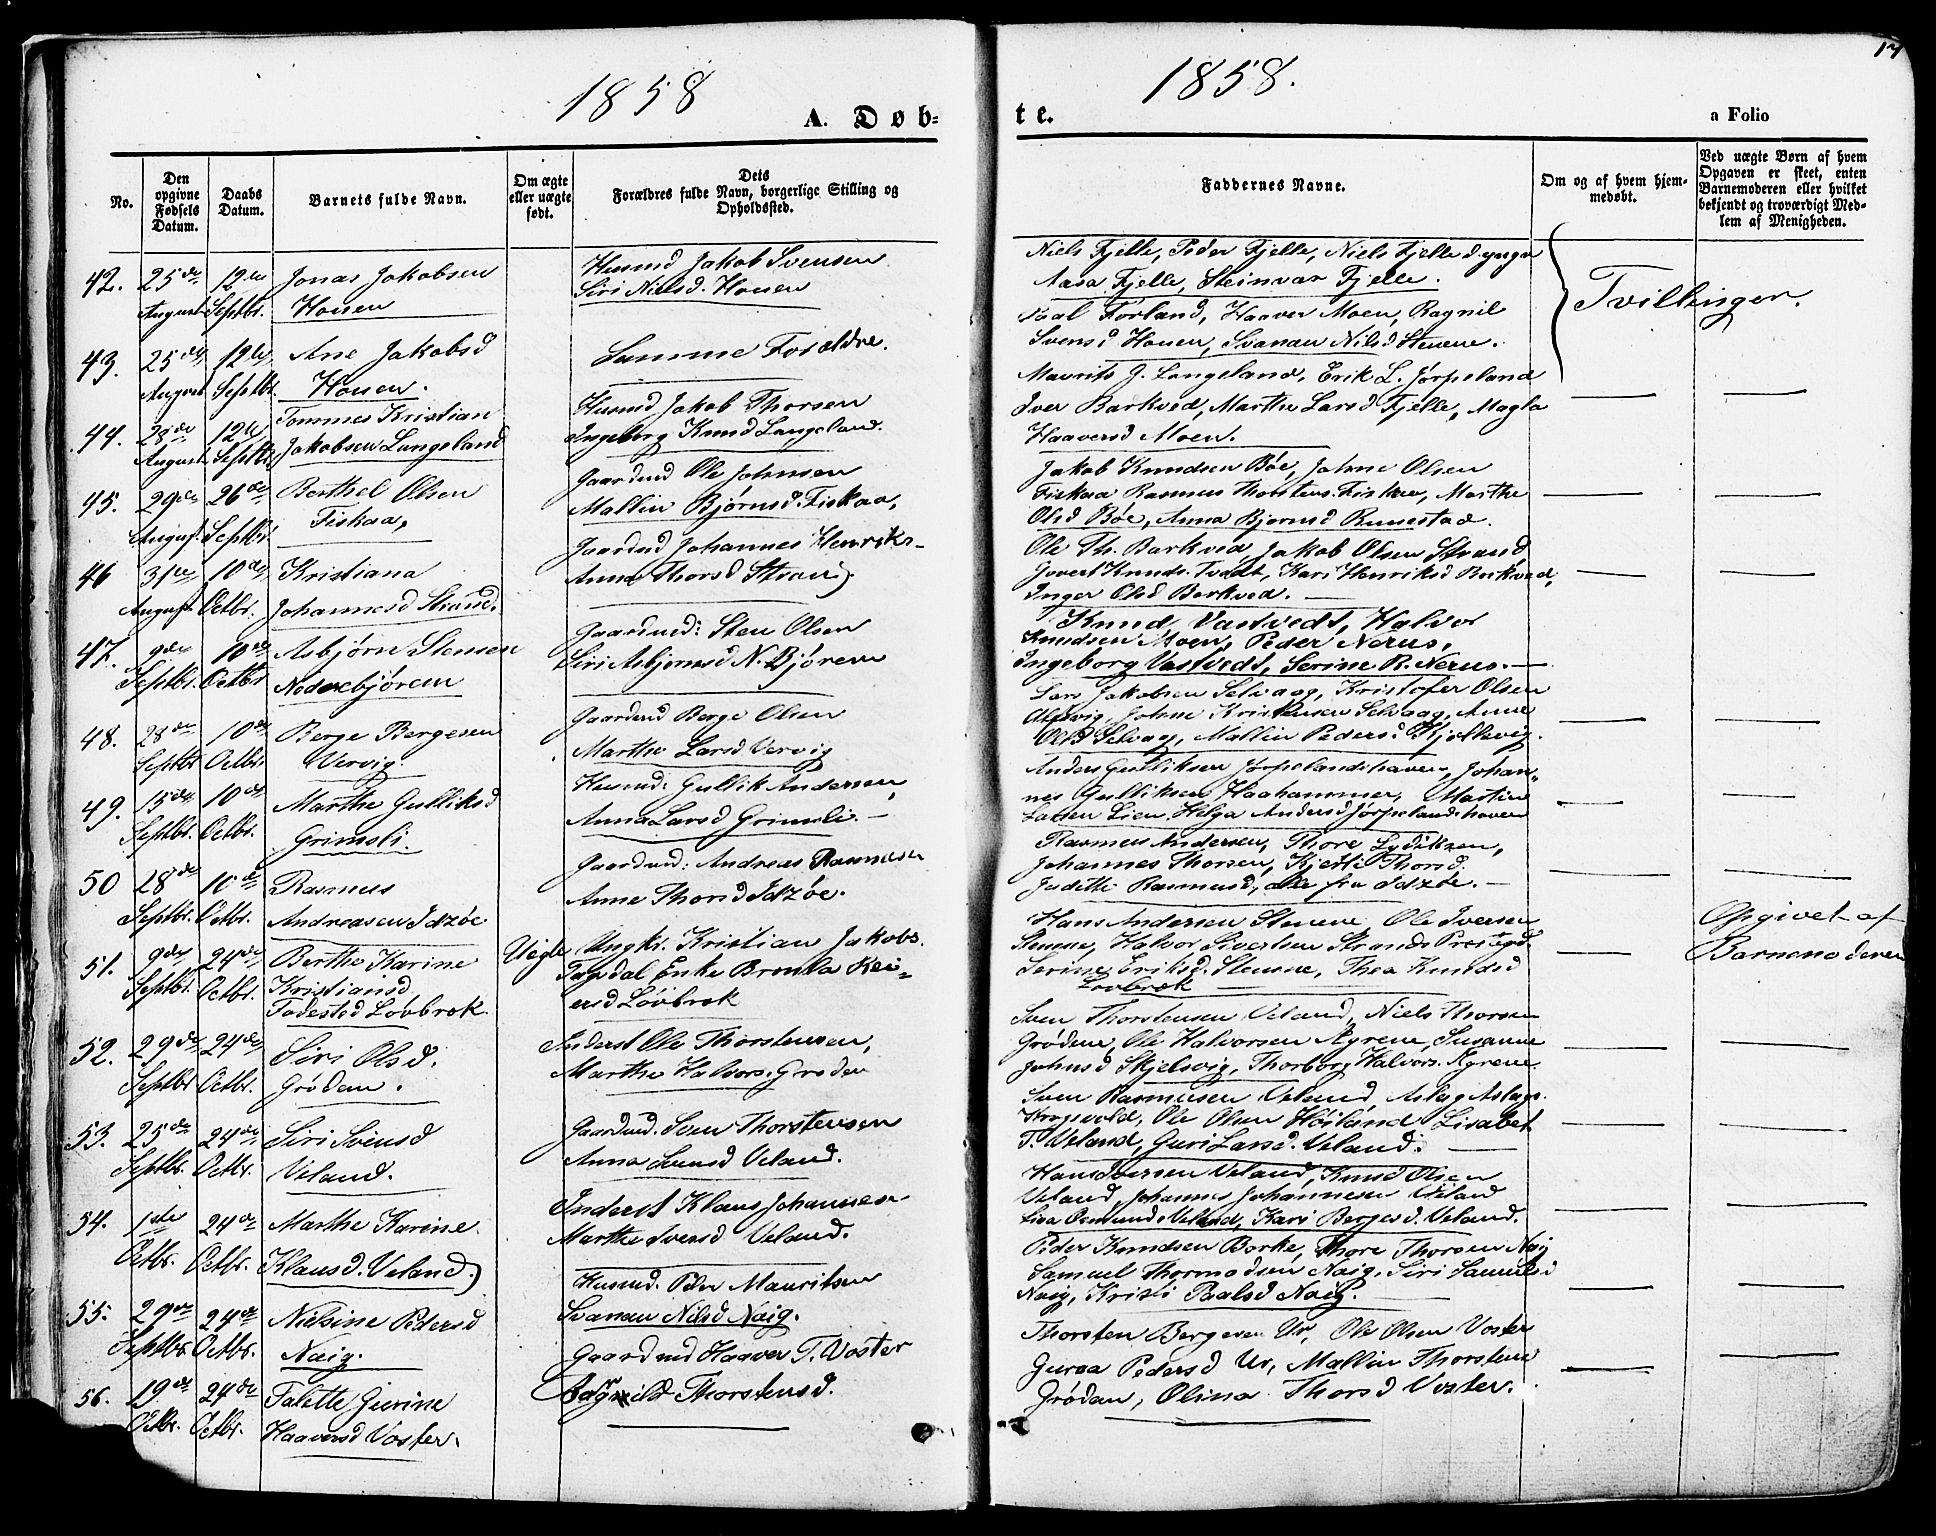 17
1858
1858.
A. Døb-
te.
a Folio
No.
Den opgivne Fødsels Datum.
Daabs Datum.
Barnets fulde Navn.
Om ægte eller uægte født.
Dets Forældres fulde Navn, borgerlige Stilling og Opholdssted.
Faddernes Navne.
Om og af hvem hjemmedøbt.
Ved uægte Børn af hvem Opgaven er skeet, enten Barnemoderen eller hvilket bekjendt og troværdigt Medlem af Menigheden.
42. 25de August 12te Septbr.
Jonas Jakobsen
Houen
Husmd Jakob Svensen
Siri Nielsd. Houen
Niels Fjelle, Peder Fjelle, Niels Fjelle d. yngr
Aasa Fjelle, Steinvar Fjelle.
Tvillinger.
43. 25de August 12te Septbr.
Ane Jakobsd
Houen.
Samme Forældre.
Paal Førland, Haaver Moen, Ragnil
Svensd Houen, Svanau Nilsd Stenene.
44. 28de August 12te Septbr.
Tommes Kristian
Jakobsen Langeland
Husmd, Jakob Thorsen
Ingeborg Knud Langeland.
Maurits J. Langeland, Erik L. Jørpeland
Iver Barkved, Marthe Larsd Fjelle, Magla
Haaversd Moen.
45. 29de August. 26de Septbr.
Berthel Olsen
Fiskaa,
Gaardmd Ole Johnsen
Mallin Bjørnsd. Fiskaa,
Jakob Knudsen Bøe, Johne Olsen
Fiskaa Rasmus Thorstens. Fiskaa, Marthe
Olsd Bøe, Anna Bjørnsd Runestad.
46 31te August. 10de Octbr.
Kristiana
Johannesd Strand.
Gaardmd Johannes Henriks-
Anna Thorsd Strand
Ole Th. Barkved, Jakob Olsen Strand,
Govert Knuds. Tvedt, Kari Henriksd Barkved,
Inger Olsd Barkved.
47. 9de Septbr. 10de Octbr
Asbjørn Stensen
Nedrebjørem
Gaardmd: Sten Olsen
Siri Asbjørnsd N. Bjørem
Knud Vastvedt, Halvor
Knudsen Moen, Peder Nerus,
Ingeborg Vastvedt, Serine R. Nerus.
48. 28de Septbr 10de Octbr.
Berge Bergesen
Vervig.
Gaardmd Berge Olsen
Marthe Larsd Vervig
Lars Jakobsen Selvaag, Kristofer Olsen
Johne Kristensen Selvaag, Anne
Olsd Selvaag, Mallin Pedersd Kjollevig.
49. 15de Septbr. 10de Octbr.
Marthe Gulliksd
Grimsli.
Husmd: Gullik Andersen,
Anna Larsd Grimsli.
Anders Gulliksen Jørpelandshaven, Johan-
nes Gulliksen Haahammer, Martin
Larsen Lien, Helga Andersd Jørpelandshaven
50 28de Septbr. 10de Octbr.
Rasmus
Andreasen Idzøe
Gaardmd: Andreas Rasmusen
Anne Thorsd Idzøe.
Rasmus Andersen, Thore Lydiksen,
Johannes Thorsen, Kjetti Thorsd.
Judithe Rasmusd, alle fra Idzøe.
51. 9de Septbr. 24de Octbr.
Berthe Karine
Kristiansd
Fadested Løvbrok.
Uægte
Ungkr. Kristian Jakobs.
Tagsdal Enke Bronla Rei-
ersd Løvbrok
Hans Andersen Stenene, Ole Iversen
Stenene, Halvor Sivertsen Strands Prestegd.
Serine Eriksd. Stenene, Thea Knudsd
Løvbrok
Opgivet af
Barnemoderen
52. 29de Septbr 24de Octbr.
Siri Olsd.
Grødan.
Inderst Ole Thorstensen,
Marthe Halvors. Grødan
Sven Thorstensen Veland, Niels Thorsen
Grødem, Ole Halvorsen Nyrene, Susanne
Johnsd Skjelsvig, Thorborg Halvors. Nyrene.
53. 25de Septbr. 24de Octbr.
Siri Svensd
Veland.
Gaardmd. Sven Thorstensen
Anna Svensd Veland.
Sven Rasmusen Veland, Aslag Aslags.
Krogevold, Ole Olsen Høiland Lisabet
T. Veland, Guri Larsd. Veland.
54. 1ste Octbr. 24de Octbr.
Marthe Karine
Klausd. Veland.
Inderst Klaus Johansen
Marthe Iversd Veland.
Hans Iversen Veland, Knud Olsen
Veland, Johannes Johannesen Veland
Lisa Osmunds Veland, Kari Bergesd. Veland.
55. 29de Septbr. 24de Octbr.
Nielsine Pedersd
Naig.
Husmd. Peder Mauritsen
Svanau Nilsd Naig.
Peder Knudsen Borke, Thore Thorsen Naig
Samuel Thormodsen Naig, Siri Samuelsd
Naig, Kristi Paalsd Naig.
56. 19de Octbr. 24de Octbr.
Talette Gurine
Haaversd Voster.
Gaardmd Haaver T. Voster
Ragnild Thorstensd.
Thorsten Bergesen Ur, Ole Olsen Voster
Guroa Pedersd Ur, Mallin Thorstens
Grødan, Olina Thorsd Voster.